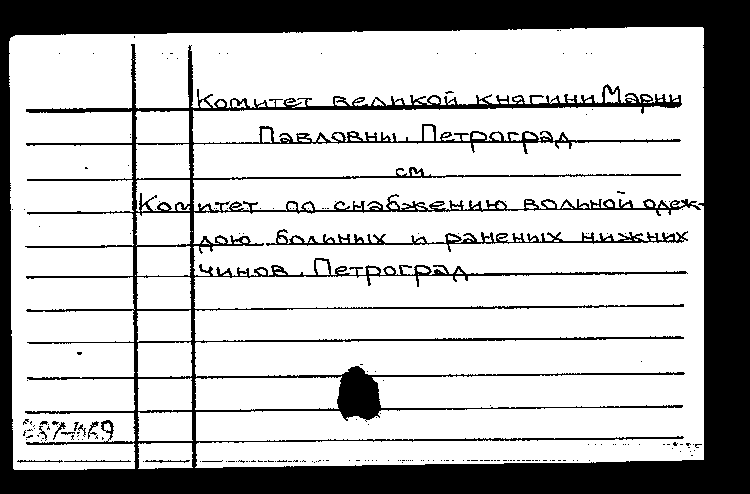 Комитет великой княгини Марии
Павловны. Петроград
см.
Комитет по снабжению вольной одеж-
дою больных и раненых нижних
чинов. Петроград